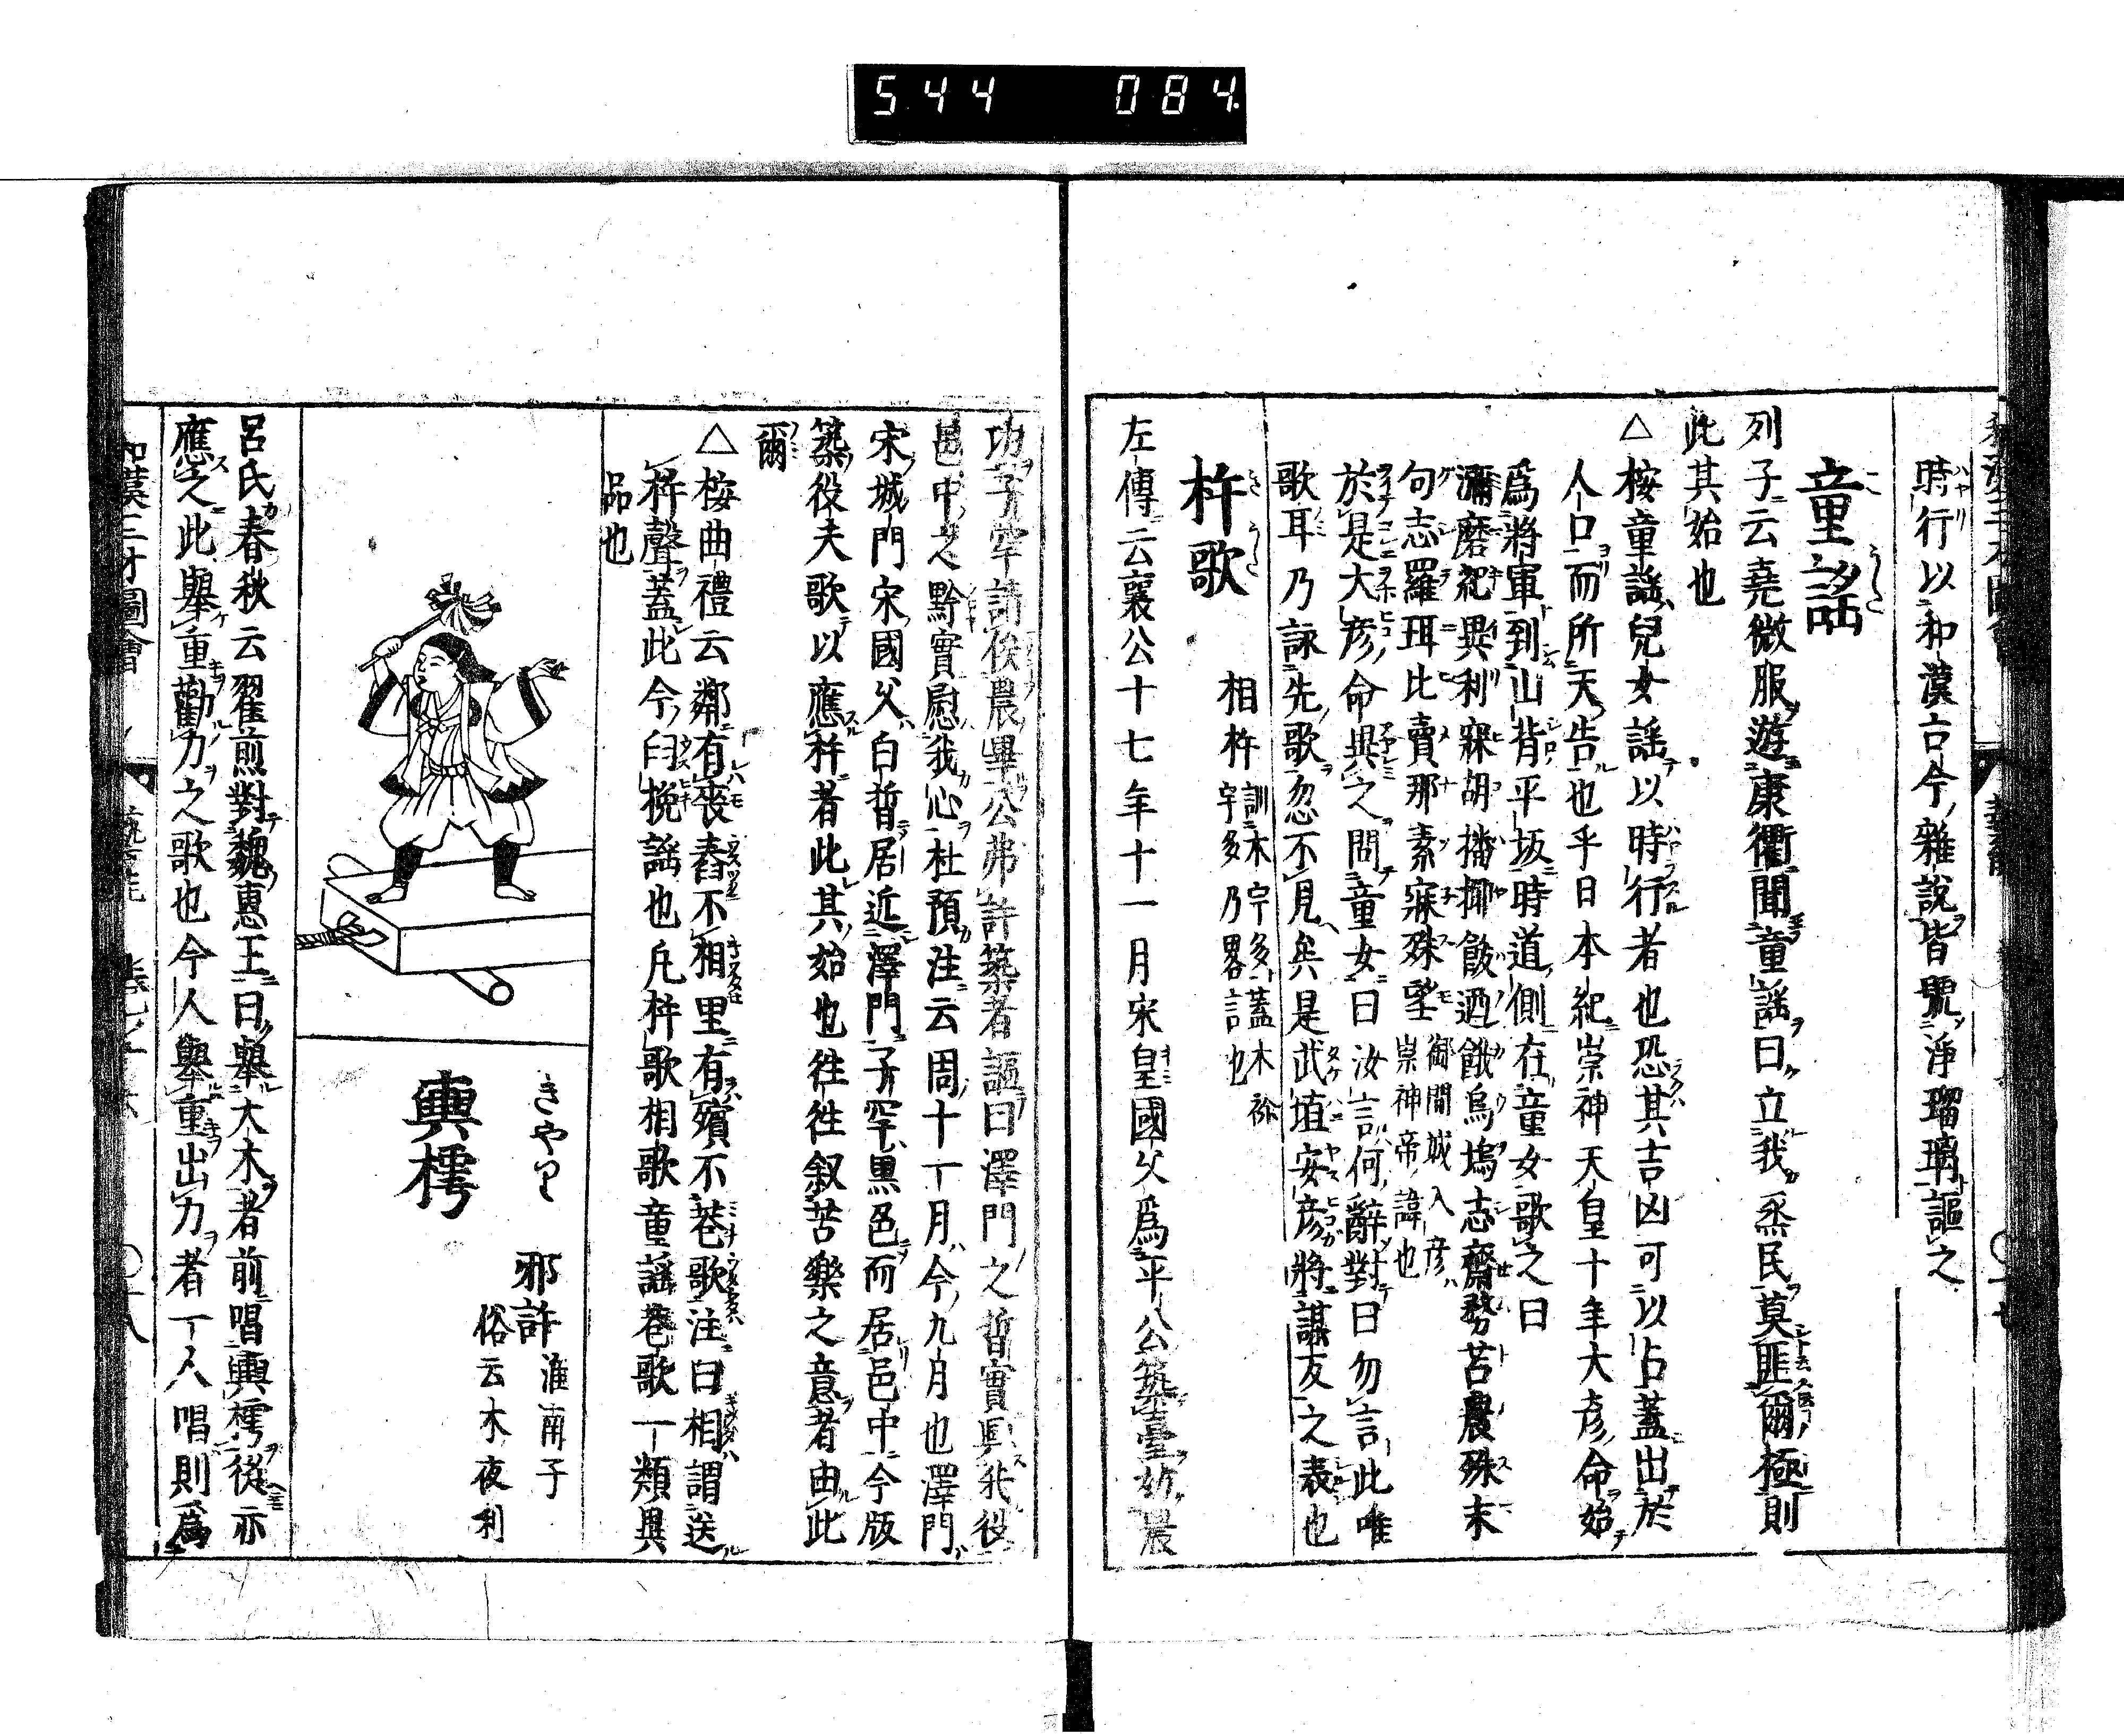 544 084
時行以和漢古今雜說皆號淨瑠璃謳之
童謡
こ うた
列子云堯微服遊康衢聞童謡曰立我烝民莫匪爾極則
此其始也
△按童謡兒女謡以時行者也恐其吉凶可以占蓋出於
人口而所天告也乎日本紀崇神天皇十年大彥命始
爲將軍到山背平坂時道側在童女歌之曰
瀰磨紀異利寐胡播揶飫迺餓烏塢志齋務苔農殊末
句志羅珥比賣那素寐殊望
御間城入彥ハ
崇神帝ノ諱也
於是大彥命異之問童女曰汝言何辭對曰勿言此唯
歌耳乃詠先歌忽不見矣是武埴安彥將謀反之表也
杵歌
き うた
相杵
訓木宇多蓋木裕
宇多乃畧言也
左傳云襄公十七年十一月宋皇國父爲平公築臺妨農
功子罕請俟農畢公弗許築者謳曰澤門之晳實興我役
邑中之黔實慰我心杜預注云周十一月今九月也澤門
宋城門宋國父白晳居近澤門子罕黒色而居邑中今版
築役夫歌以應杵者此其始也徃徃叙苦樂之意者由此
爾
△按曲禮云鄰有喪舂不相里有殯不巷歌注曰相謂送
杵聲蓋此今臼挽謡也凡杵歌相歌童謡巷歌一類異
品也
きやり
輿樗
邪許
淮南子
俗云木夜利
呂氏春秋云翟煎對魏惠王曰舉大木者前唱輿樗後亦
應之此舉重勸力之歌也今人舉重出力者一人唱則爲
和漢三才圖會